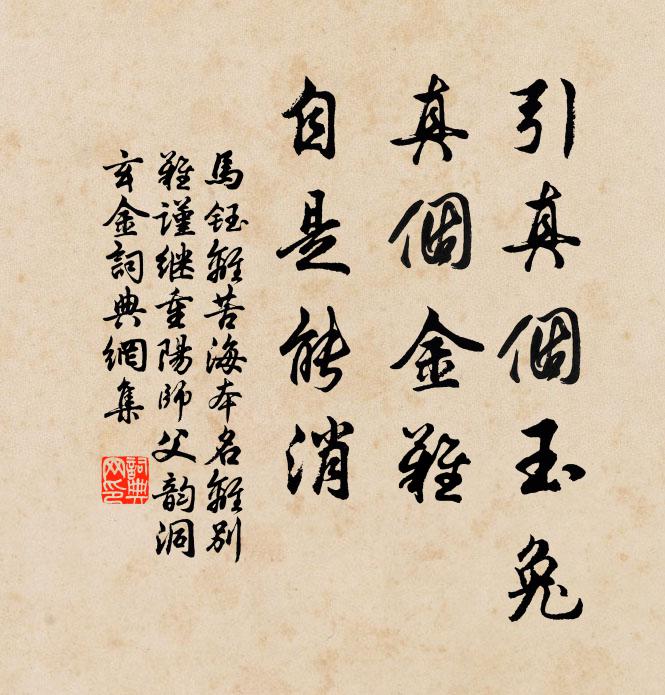 引真個玉兔
真個金難
自是能消
馬鈺離苦海本名離別
難謹继重陽師父韵洞
玄金詞典網集
詞典
网印